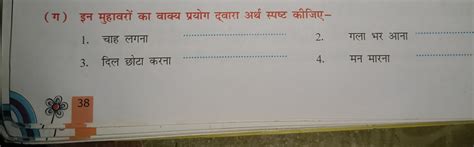 (ग) इन मुहावरों का वाक्य प्रयोग द्वारा अर्थ स्पष्ट कीजिए–
1. चाह लगना ........................ 2. गला भर आना ........................
3. दिल छोटा करना ........................ 4. मन मारना ........................
38